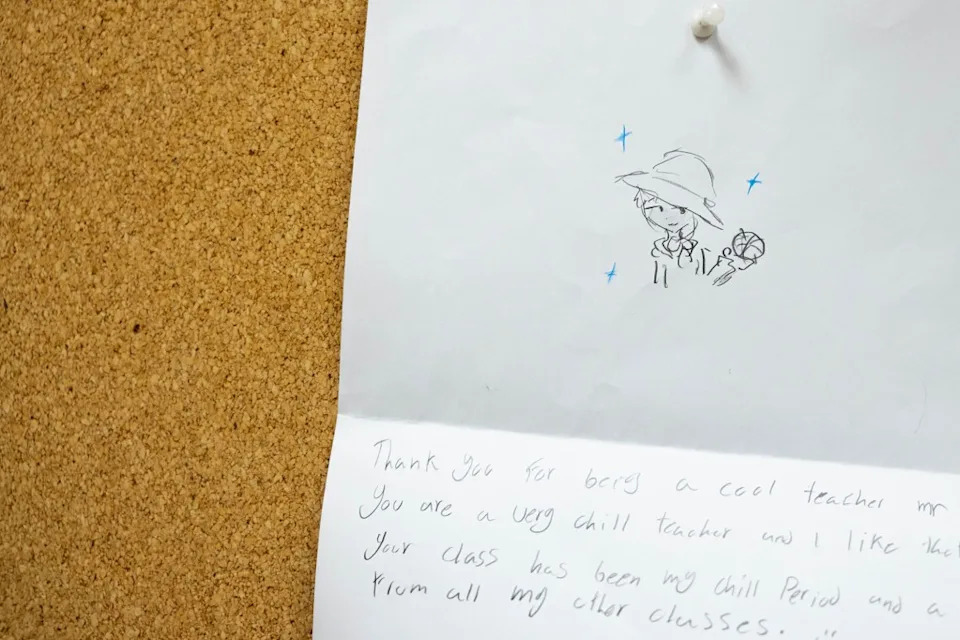 Thank you for being a cool teacher mr
You are a very chill teacher and I like that
Your class has been my chill Period and a
From all my other classes.